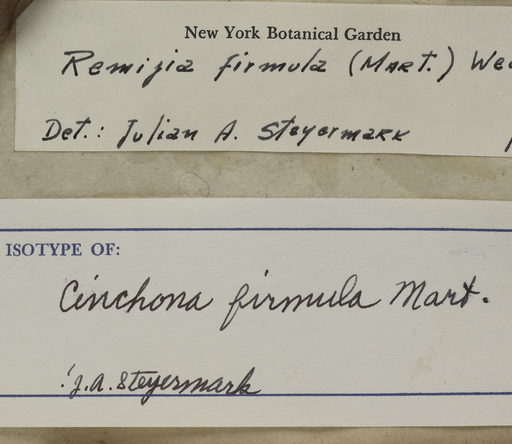 New York Botanical Garden
Remijia firmula (Mart.) We
Det.: Julian A. Steyermark
ISOTYPE OF:
Cinchona firmula Mart.
!J.A. Steyermark